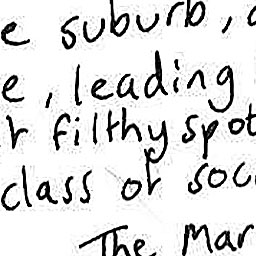 e suburb,
e, leading
r filthy spot
class of soc
The Mar